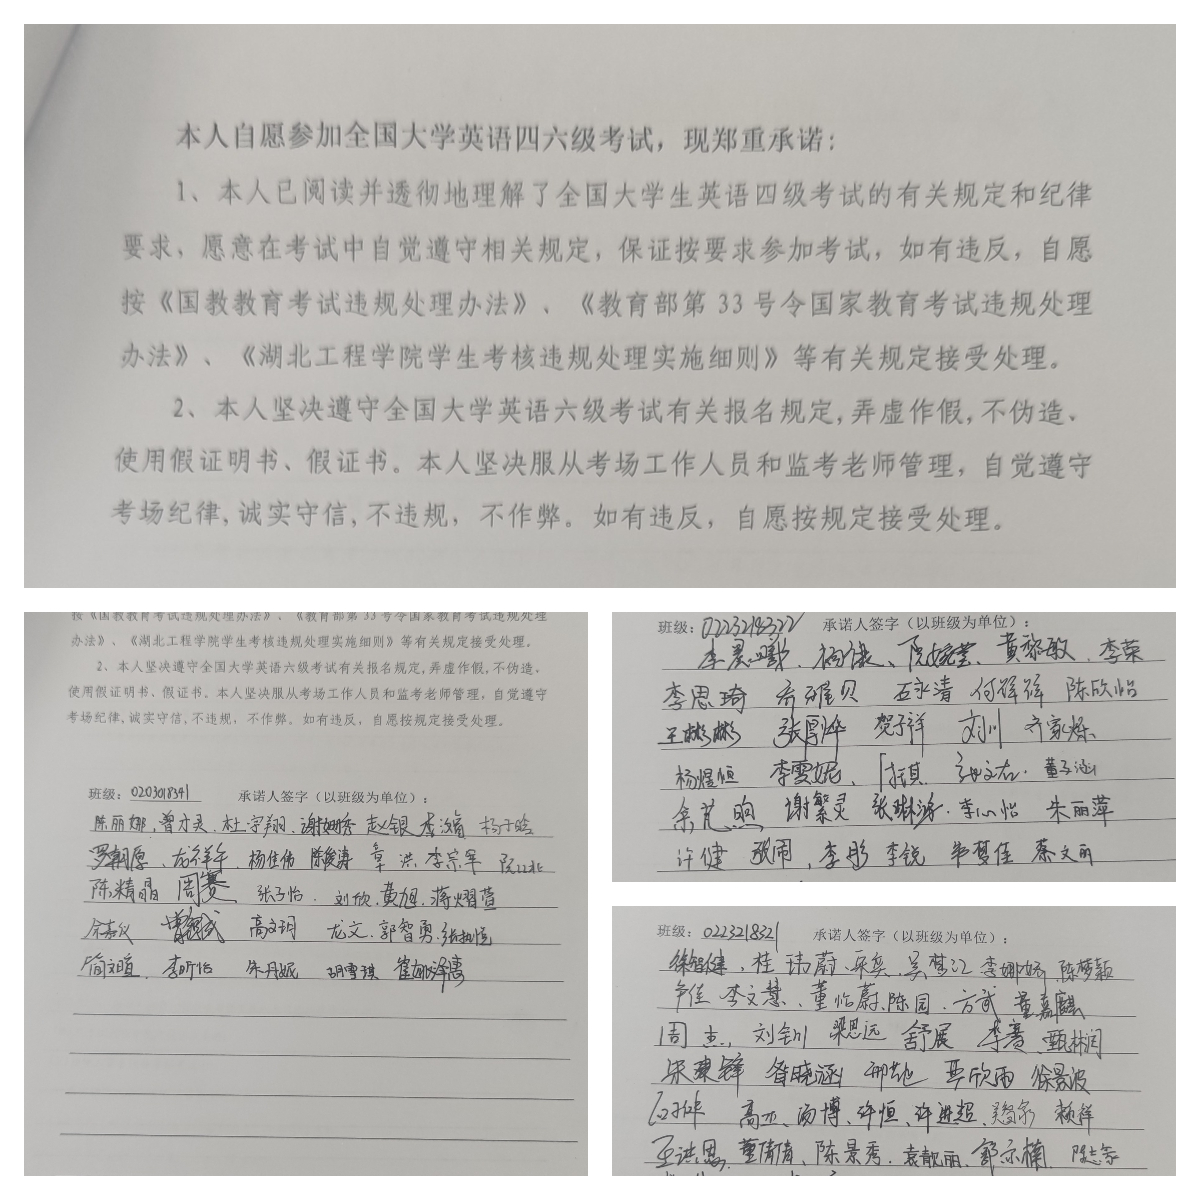 本人自愿参加全国大学英语四六级考试，现郑重承诺：
1、本人已阅读并透彻地理解了全国大学生英语四级考试的有关规定和纪律
要求，愿意在考试中自觉遵守相关规定，保证按要求参加考试，如有违反，自愿
按《国教教育考试违规处理办法》、《教育部第 33 号令国家教育考试违规处理
办法》、《湖北工程学院学生考核违规处理实施细则》等有关规定接受处理。
2、本人坚决遵守全国大学英语六级考试有关报名规定,弄虚作假,不伪造、
使用假证明书、假证书。本人坚决服从考场工作人员和监考老师管理，自觉遵守
考场纪律,诚实守信,不违规，不作弊。如有违反，自愿按规定接受处理。
按《国教教育考试违规处理办法》、《教育部第 33 号令国家教育考试违规处理
办法》、《湖北工程学院学生考核违规处理实施细则》等有关规定接受处理。
2、本人坚决遵守全国大学英语六级考试有关报名规定,弄虚作假,不伪造、
使用假证明书、假证书。本人坚决服从考场工作人员和监考老师管理，自觉遵守
考场纪律,诚实守信,不违规，不作弊。如有违反，自愿按规定接受处理。
班级：0203018341 承诺人签字（以班级为单位）：
陈丽娜、曾才灵、杜宇翔、赵银 杨子晗
杨佳伟 陈俊涛 章洪 李宗军
陈精晶 周赛 张子怡 刘欣 黄旭 蒋熠萱
余嘉仪 高文玥 龙文 郭智勇
简文暄 李昕怡 朱丹妮 胡雪琪
班级：0223218322 承诺人签字（以班级为单位）：
李晨曦、杨健、阮婉莹、黄黎敏、李荣
李思琦 乔雅贝 王永清 何祥祥 陈欣怡
王彬彬 张厚烨 贺子祥 刘川 齐家烁
杨煜恒 李雪妮、董子涵
谢繁灵 张琳涛 李心怡 朱丽萍
许健 李彤 李锐 蔡文丽
班级：0223218321 承诺人签字（以班级为单位）：
徐智健、桂玮蔚、吴梦江 李娜娇 陈梦颖
尹佳 李文慧、董怡蔚、陈园、方武 董嘉麒
周杰、刘剑川 梁思远 舒展 李赛 甄林润
宋栗锋 昝晓涵 邢地 覃欣雨 徐景波
高亚 汤博、许恒、许进超 赖祥
董倩倩、陈景秀、袁靓丽、郭示楠